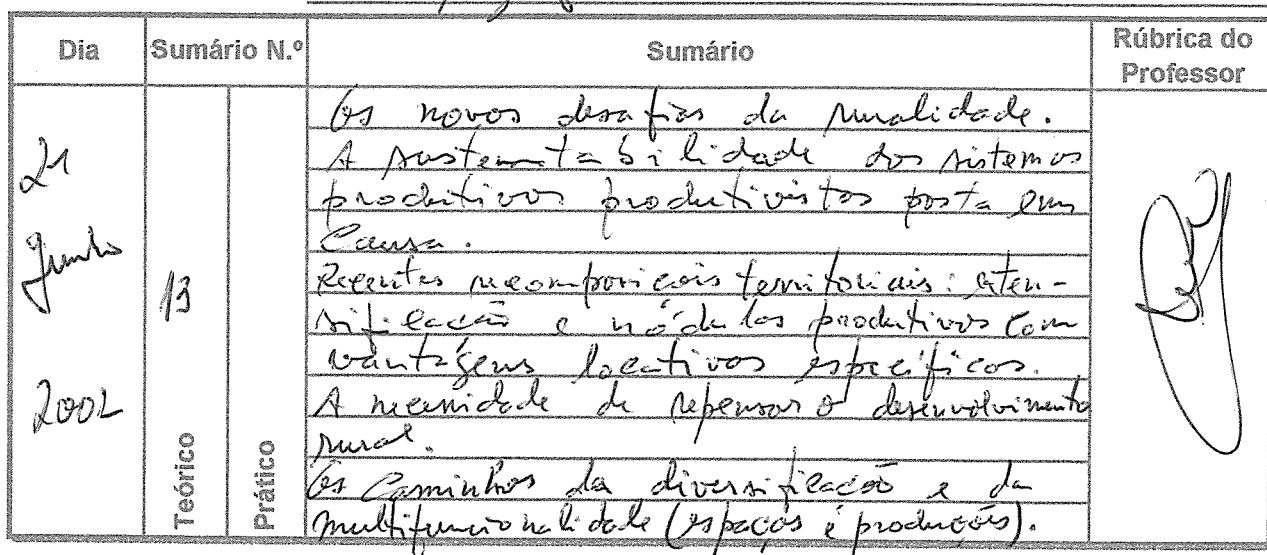 Dia
Sumário N.º
Sumário
Rúbrica do
Professor
21
Junho
2002
13
Teórico
Prático
Os novos desafios da ruralidade.
A sustentabilidade dos sistemas
produtivos produtivistas posta em
Causa.
Recentes recomposições territoriais: exten-
sificação e nódulos produtivos com
vantagens locativas específicas.
A necessidade de repensar o desenvolvimento
rural.
Os Caminhos da diversificação e da
multifuncionalidade (espaços e produções).